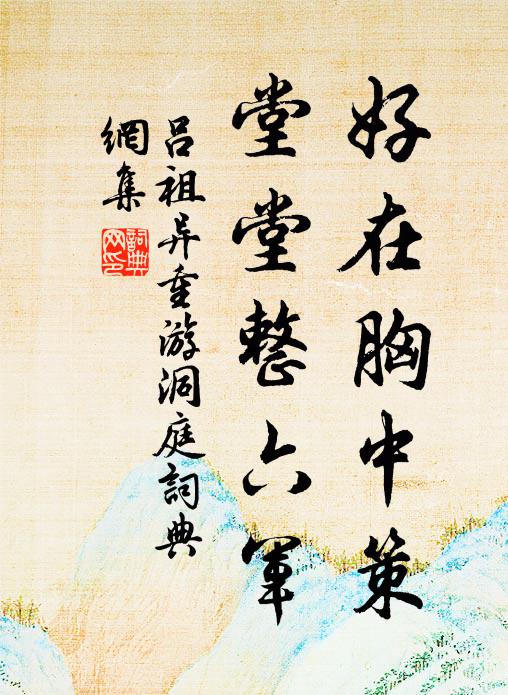 好在胸中策
堂堂整六軍
吕祖异重游洞庭詞典
網集
詞典
网印